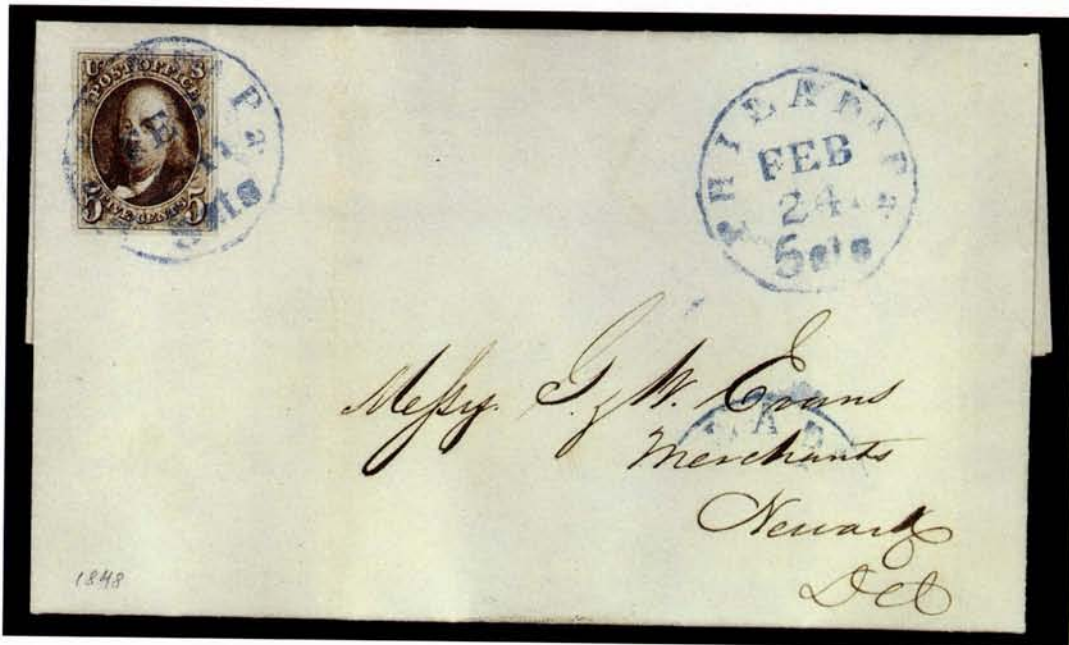 U S
POST OFFICE
5 5
FIVE CENTS
Pa
5cts
PHILADA Pa
FEB
24
5cts
Messrs. G. & W. Evans
Merchants
Newark
Del
1848